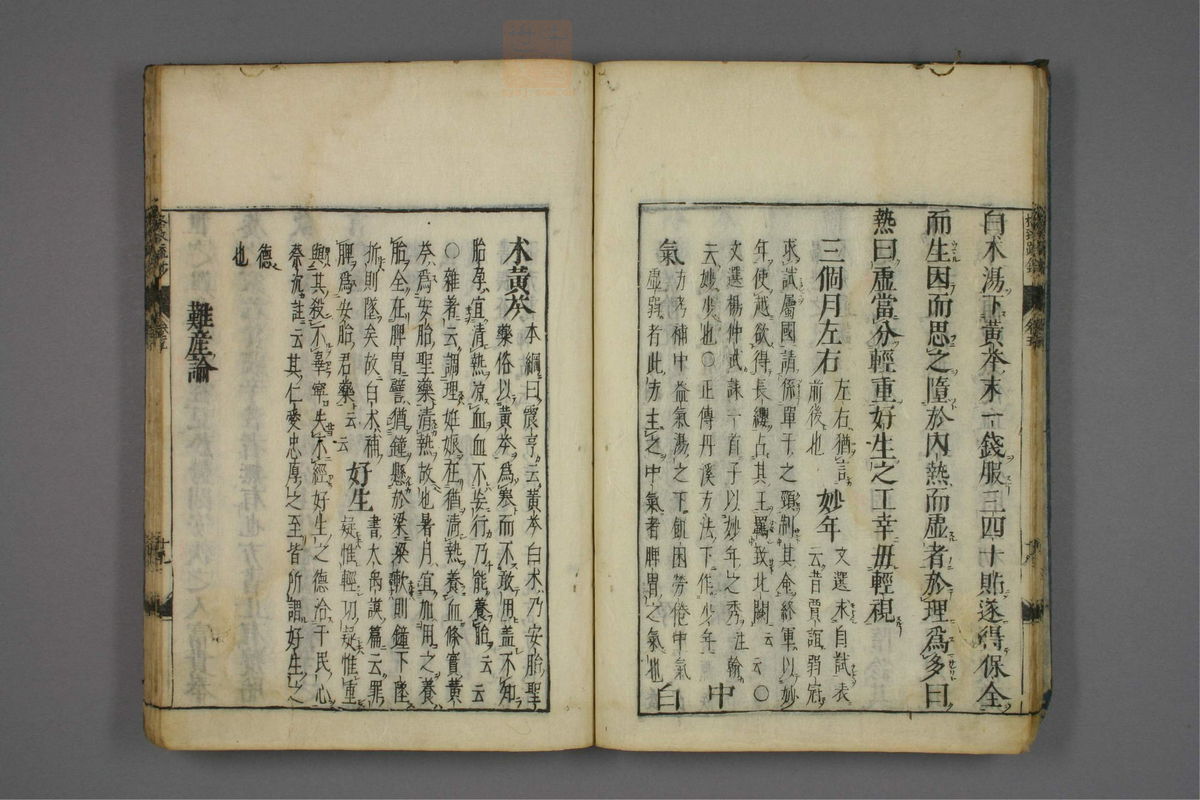 白朮湯下黃芩末一錢服三四十貼遂得保全
而生因而思之隨於內熱而虛者於理爲多曰
熱曰虛當分輕重好生之工幸毋輕視
三個月左右 左右猶言前後也 妙年 文選求自試表云昔賈誼弱冠
求試屬國請係單于之頸制其命終軍以妙
年使越欲得長纓占其王羈致北闕云云○
文選楊仲武誄一首子以妙年之秀註翰
云妙少也○正傳丹溪方法下作少年 中
氣 方考補中益氣湯之下飢困勞倦中氣虛弱者此方主之中氣者脾胃之氣也 白
朮黃芩 本綱曰震亨云黃芩白朮乃安胎聖藥俗以黃芩爲寒而不敢用盖不知
胎孕宜清熱凉血血不妄行乃能養胎云云
○雜著云調理妊娠在猶清熱養血條實黃
芩爲安胎聖藥清熱故也暑月宜加用之養
胎全在脾胃譬猶鐘懸於梁梁軟則鐘下墜
折則墜矣故白朮補脾爲安胎君藥云云 好生 書大禹謨篇云罪疑惟輕功疑惟重
與其殺不辜寧失不經好生之德洽于民心
蔡沉註云其仁愛忠厚之至皆所謂好生之
德也
難產論